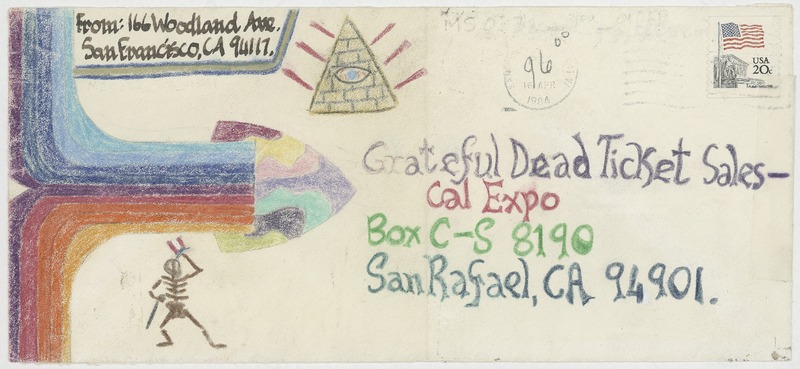 From: 166 Woodland Ave.
San Francisco, CA 94117.
96 00
16 APR
1984
USA
20c
Grateful Dead Ticket Sales—
Cal Expo
Box C-S 8190
San Rafael, CA 94901.